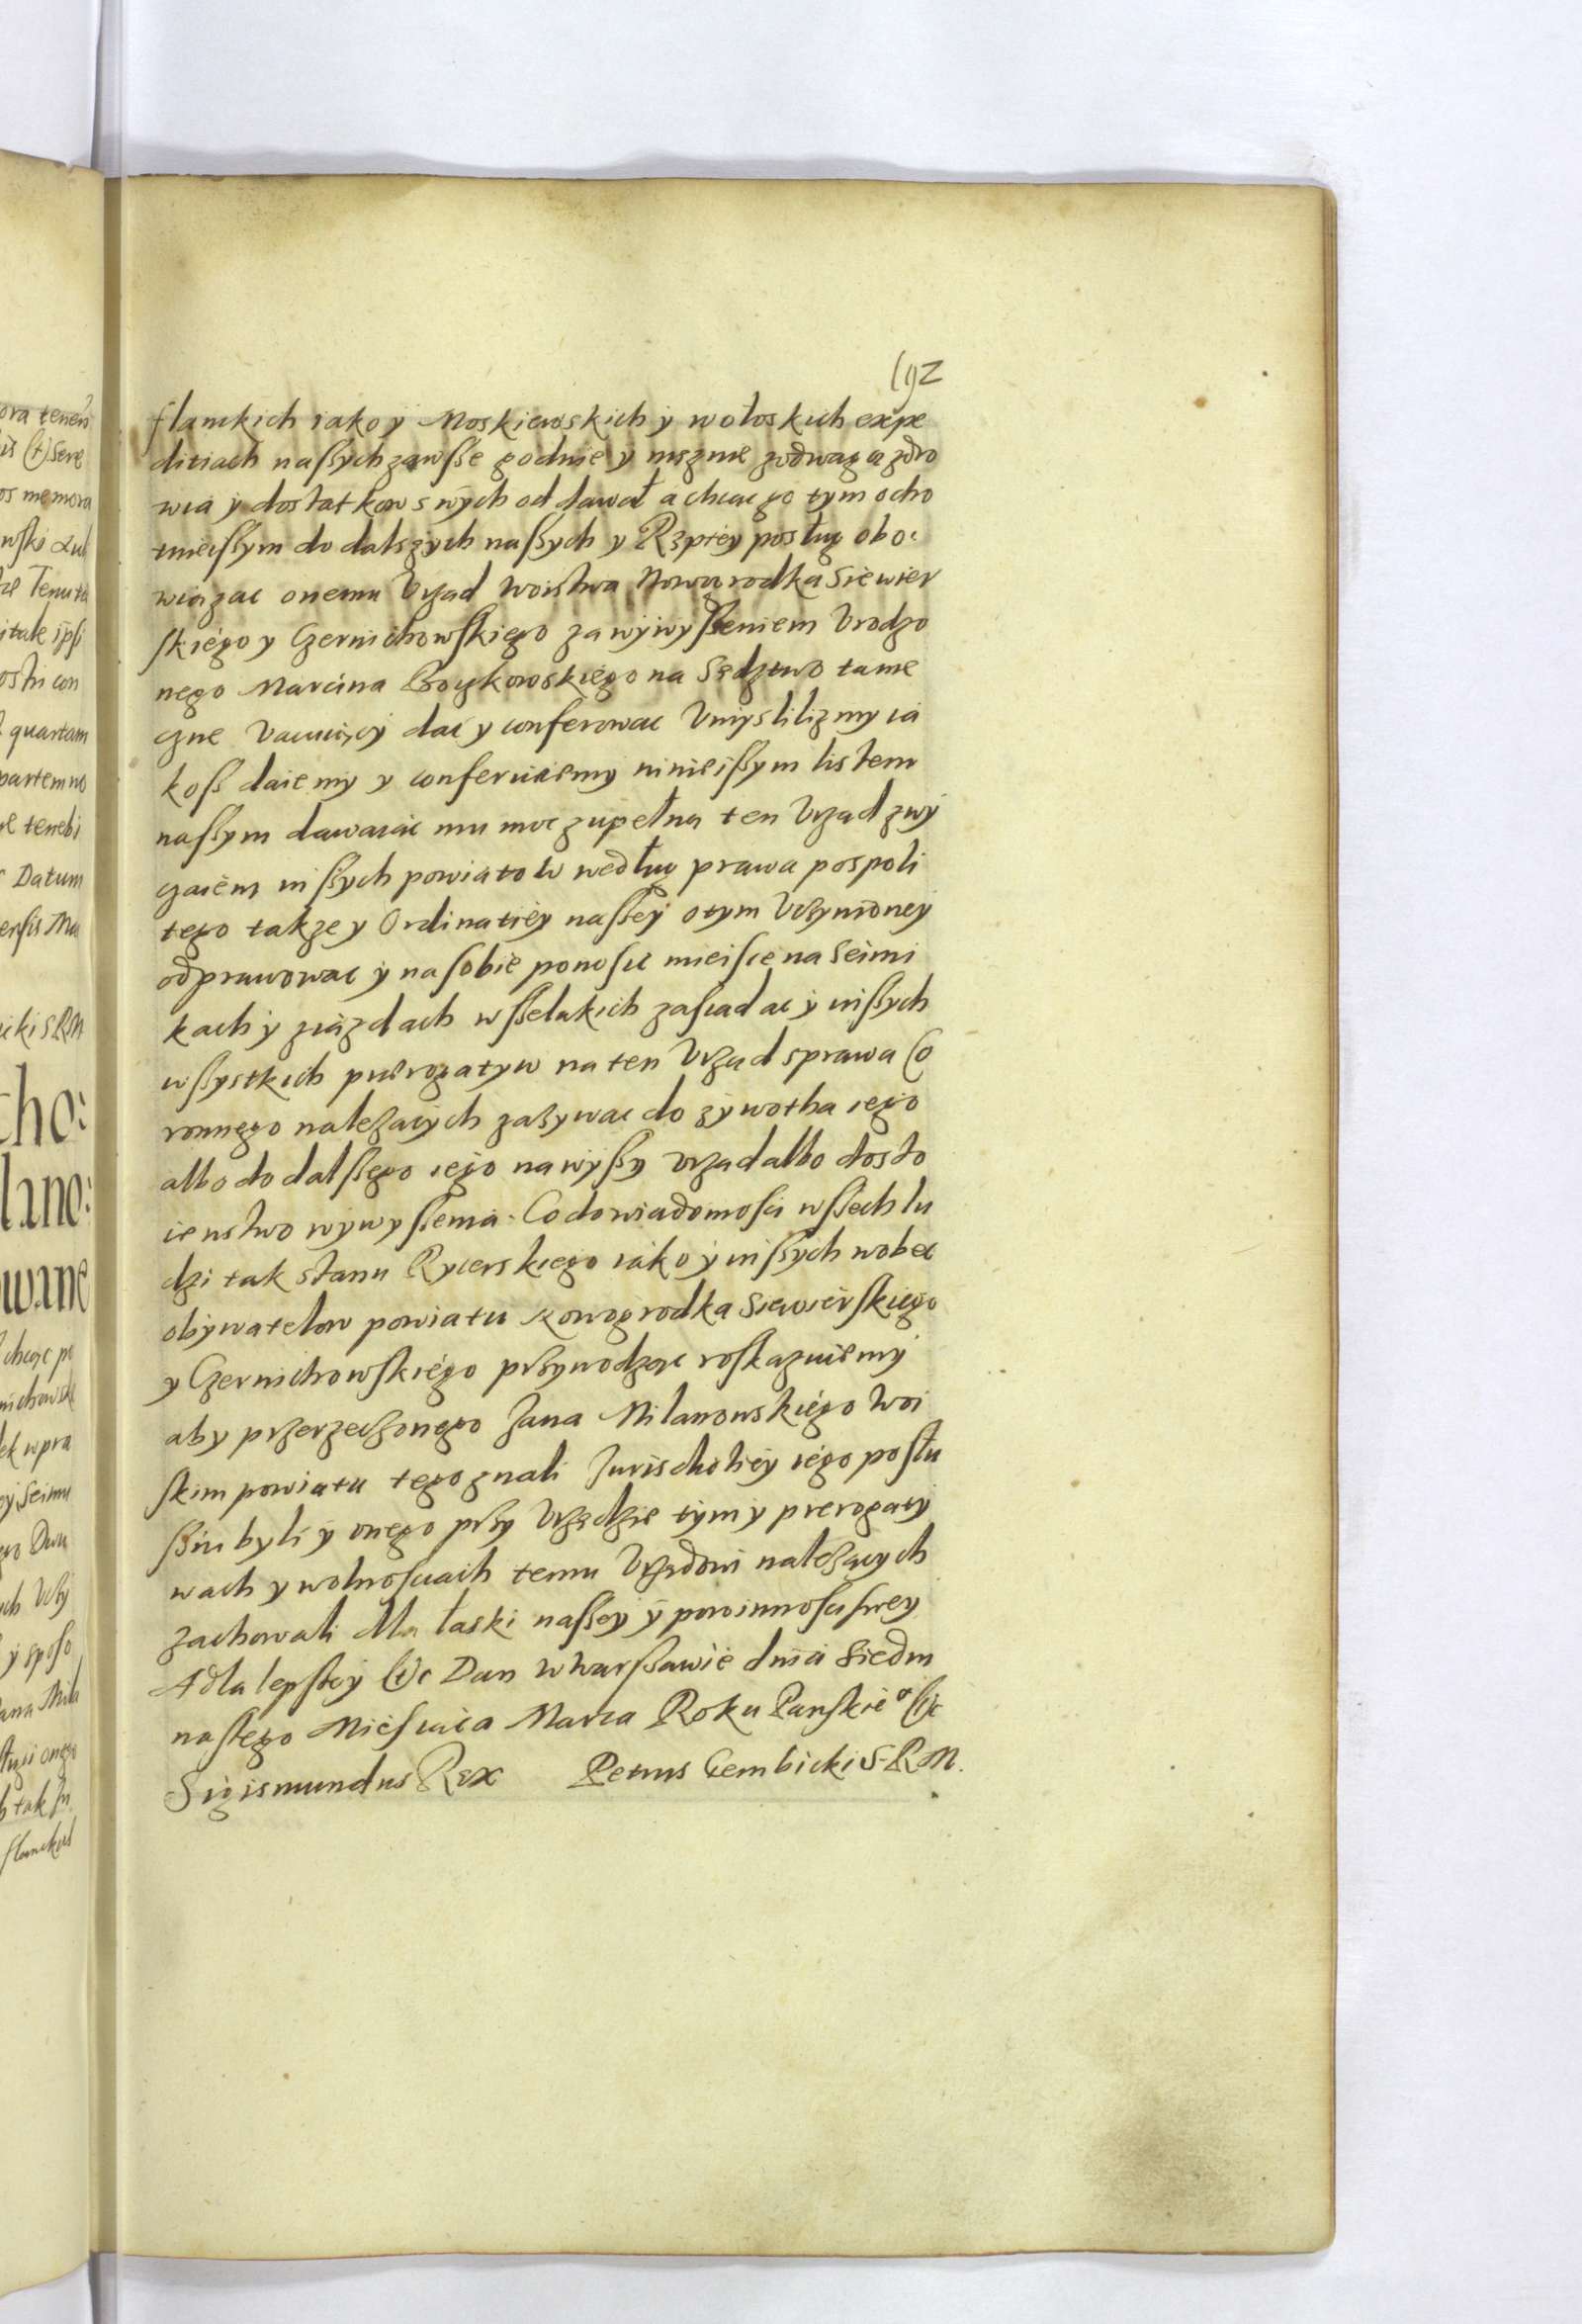 192
flanckich iako y Moskiewskich y wołoskich expe
ditiach naßych zawsße godnie y męznie z odwagą zdro
wia y dostatkow swych oddawał a chcąc go tym ocho
tnieißym do dalszych naßych y Rzptey posług obo:
wiązac onemu Vrząd Woistwa Nowogrodka Siewier
skiego y Czernichowskiego za wywyßeniem Vrodzo
nego Marcina Boykowskiego na Sędztwo tame
czne Vacuiący dac y conferowac Vmyslilizmy ia
koß daiemy y conferuiemy ninieißym listem
naßym dawaiąc mu moc zupełną ten Vrząd zwy
czaiem inßych powiatow według prawa pospoli
tego takze y Ordinatiey naßey o tym Vczynioney
odprawowac y na sobie ponosic mieisce na Seimi
kach y ziazdach wßelakich zasiadac y inßych
wßystkich prerogatyw na ten Vrząd sprawa Co
ronnego nalezących zazywac do zywotha iego
albo do dalßego iego na wyßy Vrząd albo dosto
ienstwo wywyßenia. Co do wiadomosci wßech lu
dzi tak stanu Rycerskiego iako y inßych wobec
obywatelow powiatu Nowogrodka Siewierskiego
y Czernichowskiego przywodząc roskazuiemy
aby przerzeczonego Jana Milanowskiego Woi
skim powiatu tego znali Jurisdictiey iego posłu
ßni byli y onego przy Vrzędzie tym y prerogaty
wach y wolnosciach temu Vrzędowi nalezących
zachowali dla łaski naßey y powinnosci swey
A dla lepßey etc Dan w Warßawie dnia Siedm
nastego Miesiąca Marca Roku Panskie° etc
Sigismundus Rex Petrus Gembicki S R M.